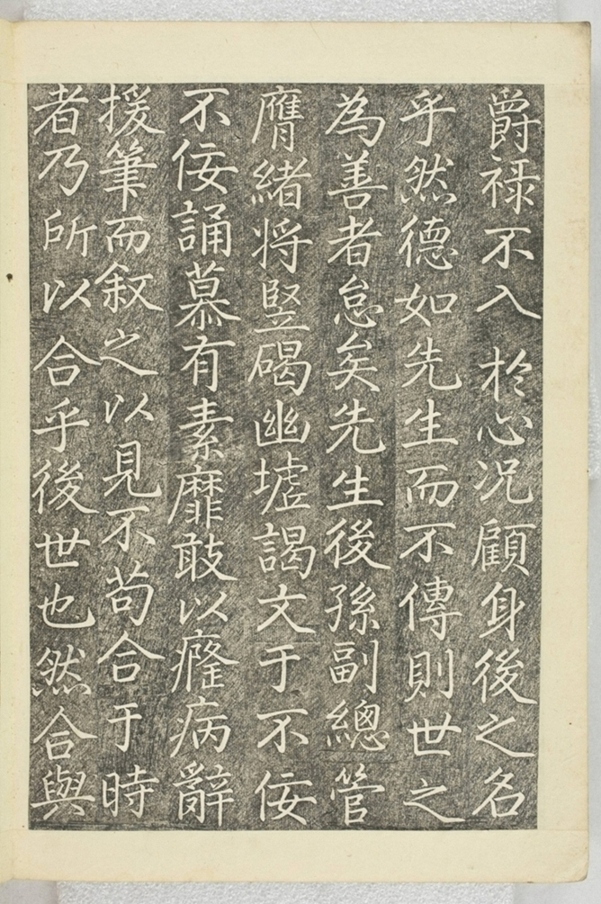 爵祿不入於心况顧身後之名
乎然德如先生而不傳則世之
為善者怠矣先生後孫副總管
膺緒将竪碣幽墟謁文于不佞
不佞誦慕有素靡敢以癃病辭
援筆而叙之以見不苟合于時
者乃所以合乎後世也然合與